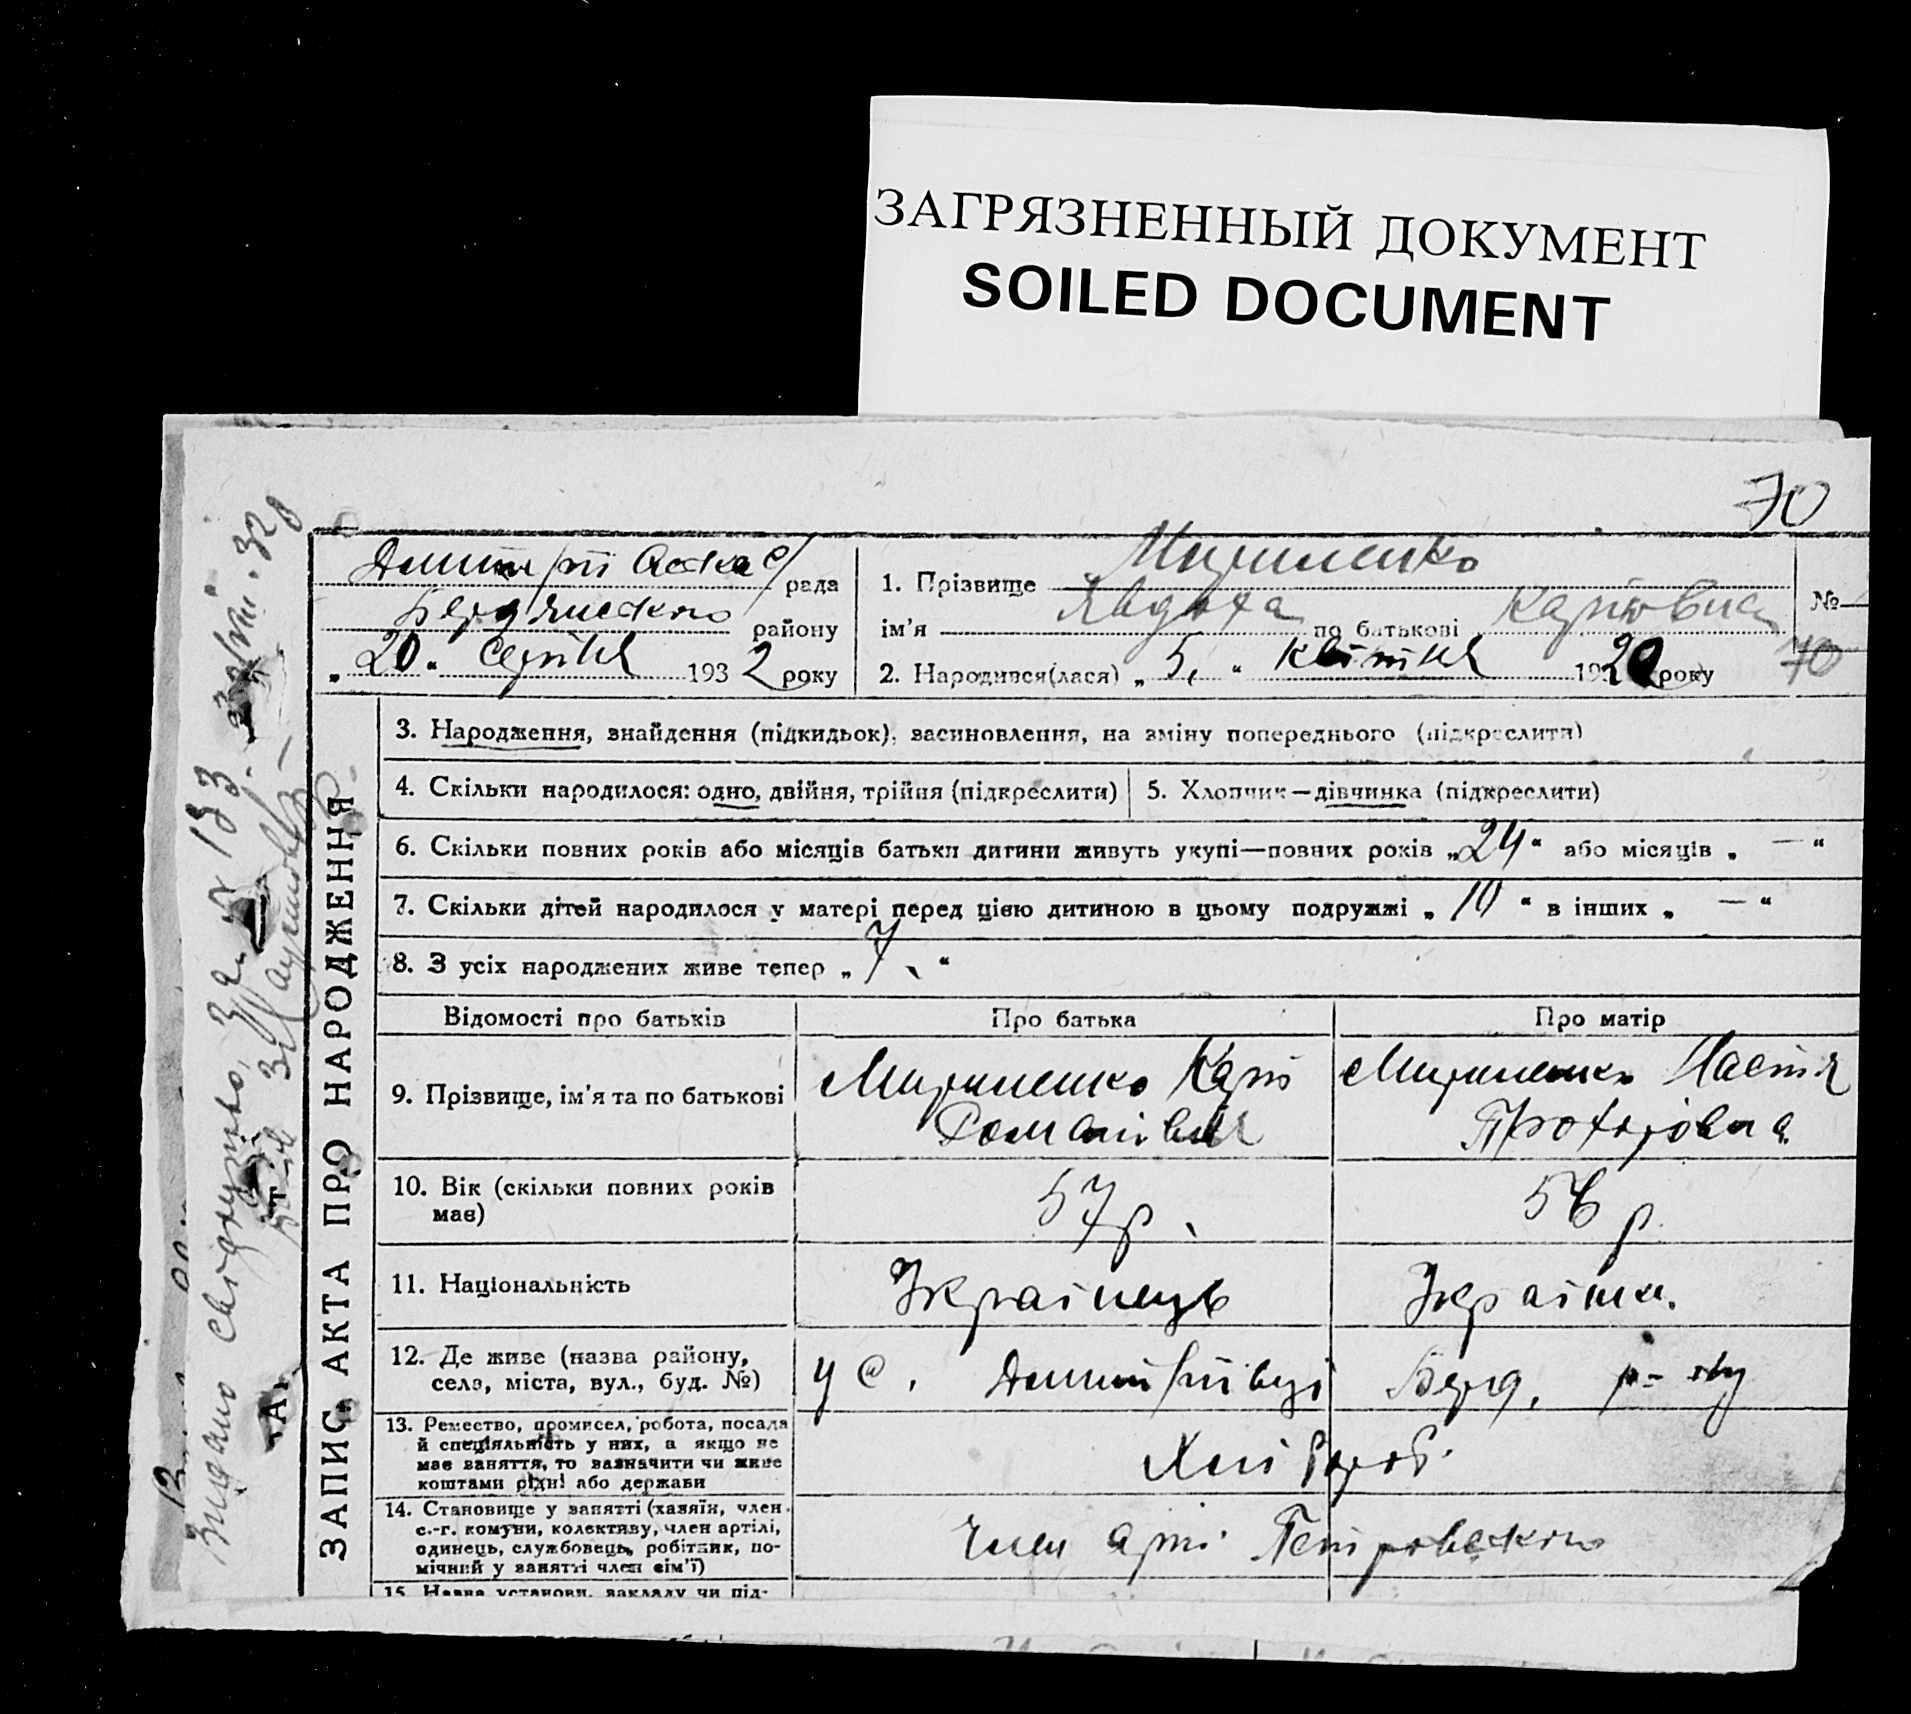 ЗАГРЯЗНЕННЫЙ ДОКУМЕНТ
SOILED DOCUMENT
70
рада
району
„20“ серпня 1932 року
1. Прізвище Мироненко
ім'я Явдоха по батькові Карповна
2. Народився(лася) „5“ квітня 1920 року
№
70
ЗАПИС АКТА ПРО НАРОДЖЕННЯ
3. Народження, знайдення (підкидьок), засиновлення, на зміну попереднього (підкреслити)
4. Скільки народилося: одно, двійня, трійня (підкреслити)
5. Хлопчик—дівчинка (підкреслити)
6. Скільки повних років або місяців батьки дитини живуть укупі—повних років „24“ або місяців „—“
7. Скільки дітей народилося у матері перед цією дитиною в цьому подружжі „10“ в інших „—“
8. З усіх народжених живе тепер „7“
Відомості про батьків
Про батька
Про матір
9. Прізвище, ім'я та по батькові
Мироненко Карпо
Романівич
Мироненко Настя
Прохорівна
10. Вік (скільки повних років
має)
57 р.
56 р.
11. Національність
Українець
Українка.
12. Де живе (назва району,
села, міста, вул., буд. №)
у с. Дмитрівці Берд. р-ну
13. Ремество, промисел, робота, посада
й спеціяльність у них, а якщо не
має заняття, то вазначити чи живе
коштами рідні або держави
Хлібороб.
14. Становище у занятті (хазяїн, член
с.-г. комуни, колективу, член артілі,
одинець, службовець, робітник, по-
мічний у занятті член сім'ї)
Член арт. Петровского
15. Назва установи, закладу чи під-
Видано свідоцтво, за № 133